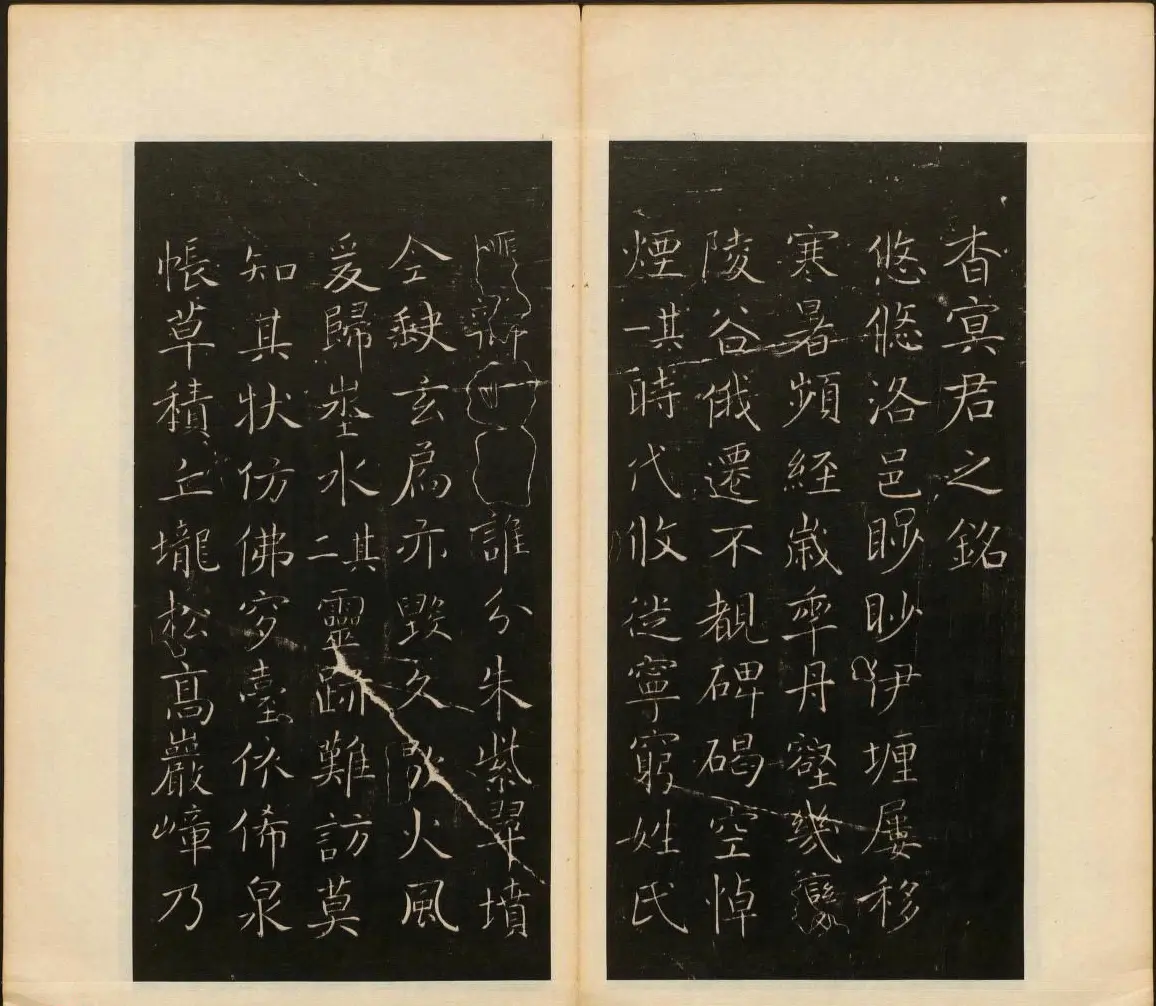 杳冥君之銘
悠悠洛邑眇眇伊壥屢移
寒暑頻經歲年丹壑幾變
陵谷俄遷不覩碑碣空悼
煙其一時代攸徙寧窮姓氏
誰分朱紫翠墳
全缺玄扃亦毀久火風
爰歸塋水其二靈跡難訪莫
知其狀仿佛穸臺依俙泉
帳草積丘壠松高巖嶂乃